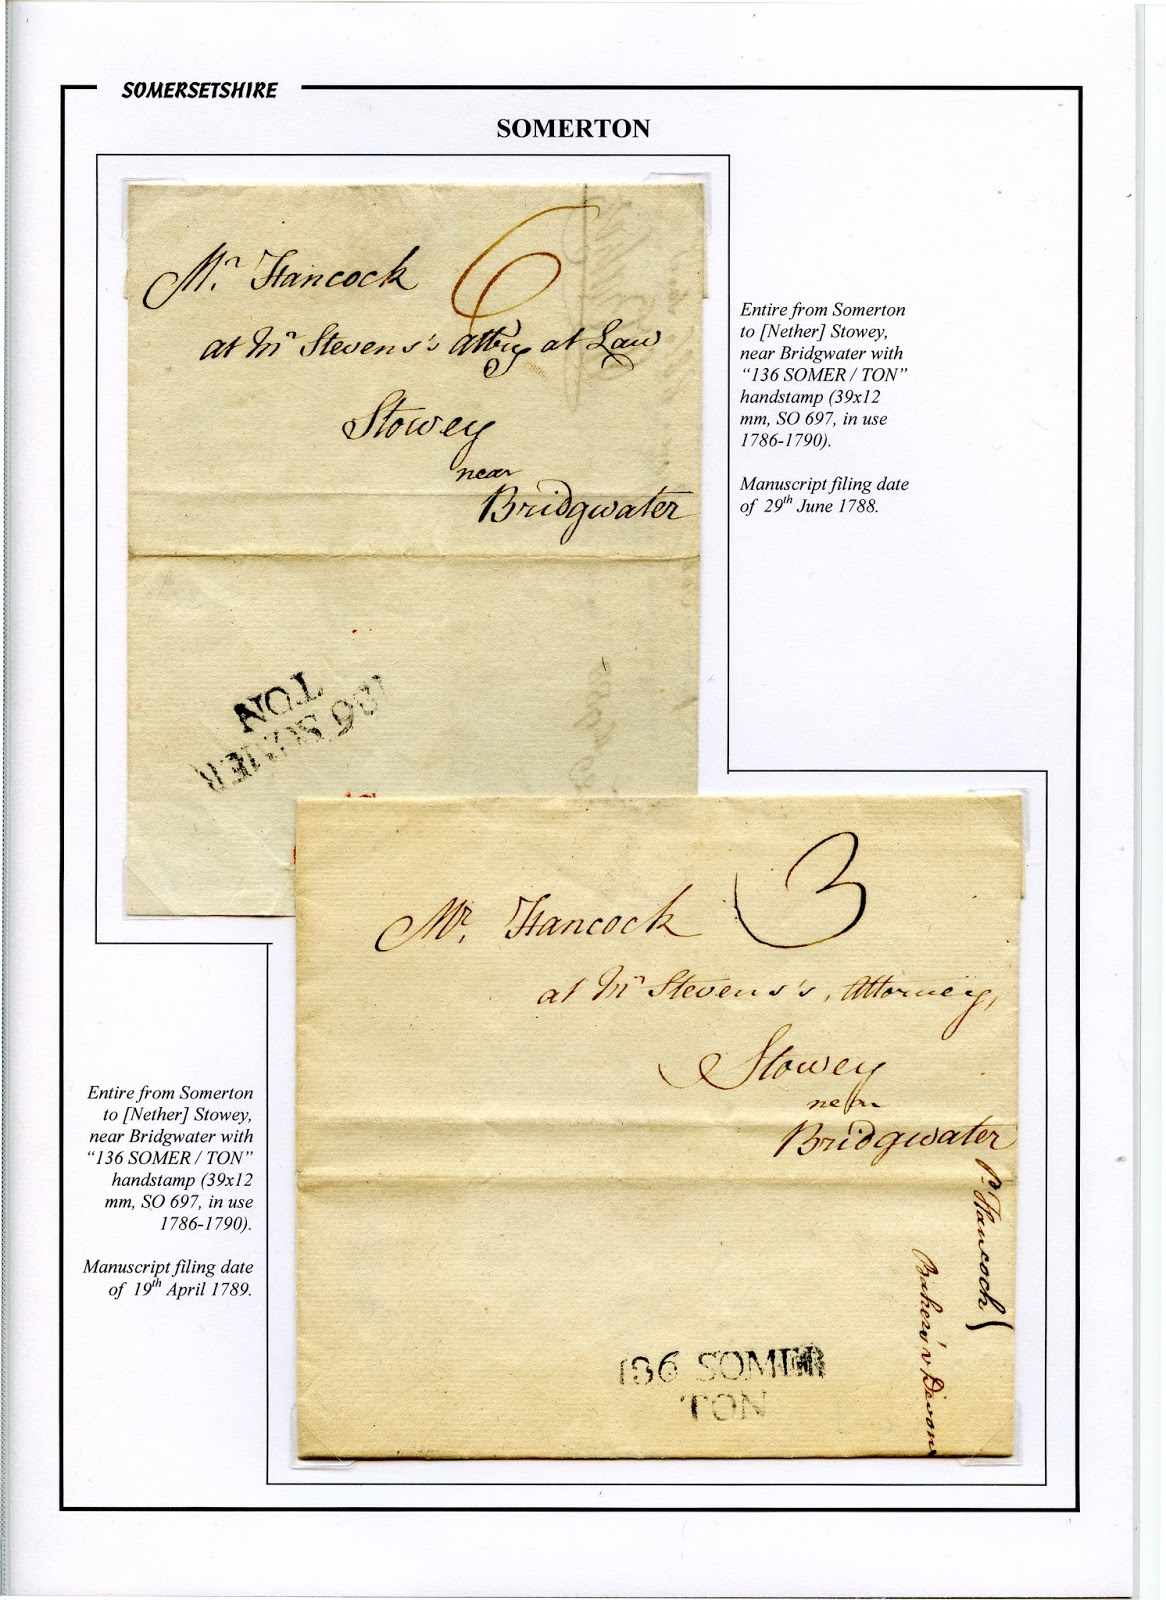 SOMERSETSHIRE
SOMERTON
Mr. Hancock
6
at Mr Stevens's Atty at Law
Stowey
near
Bridgwater
136 SOMER
TON
Entire from Somerton
to [Nether] Stowey,
near Bridgwater with
“136 SOMER / TON”
handstamp (39x12
mm, SO 697, in use
1786-1790).
Manuscript filing date
of 29th June 1788.
Mr. Hancock
3
at Mr Stevens's, Attorney,
Stowey
near
Bridgwater
Pr. Hancock
Baker's v Devon
136 SOMER
TON
Entire from Somerton
to [Nether] Stowey,
near Bridgwater with
“136 SOMER / TON”
handstamp (39x12
mm, SO 697, in use
1786-1790).
Manuscript filing date
of 19th April 1789.